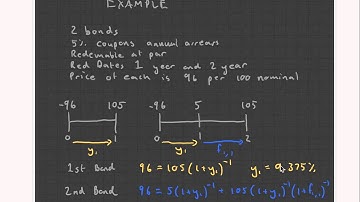 EXAMPLE
2 bonds
5% coupons annual arrears
Redeemable at par
Red Dates 1 year and 2 year
Price of each is 96 per 100 nominal
-96 105 -96 5 105
0 1 0 1 2
y₁ y₁ f₁,₁
1st Bond 96 = 105(1+y₁)⁻¹ y₁ = 9.375%
2nd Bond 96 = 5(1+y₁)⁻¹ + 105(1+y₁)⁻¹(1+f₁,₁)⁻¹